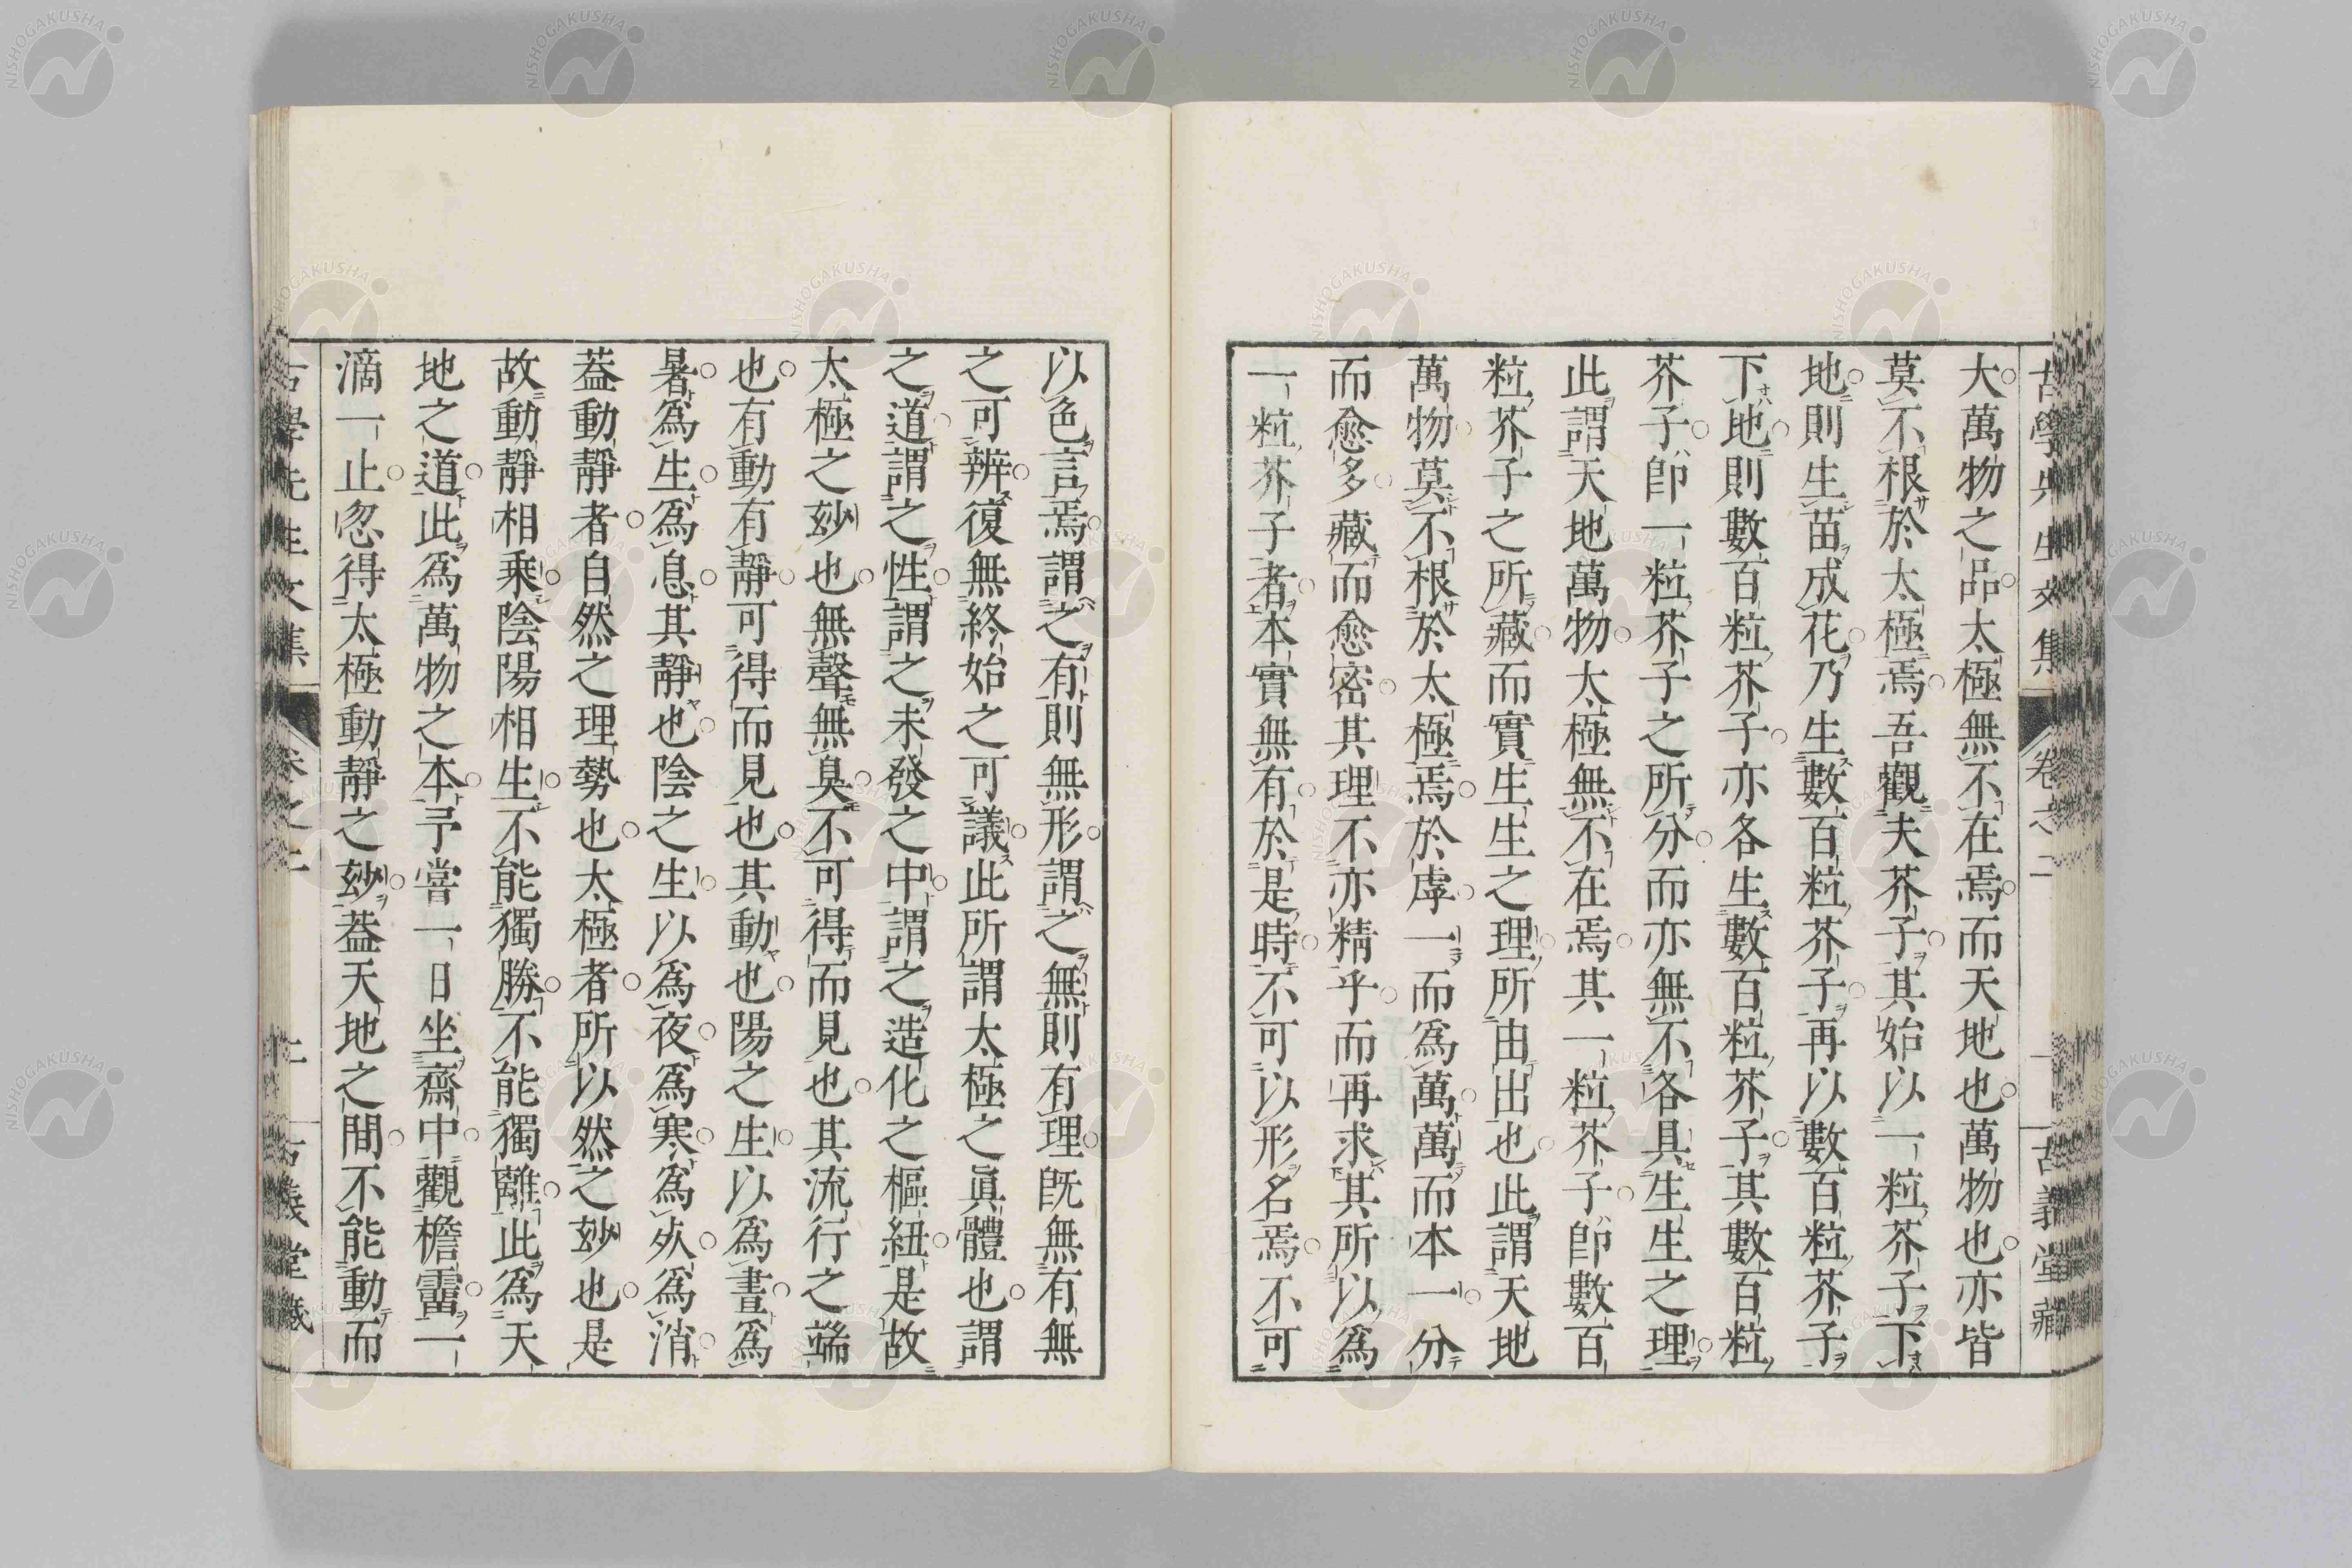 大萬物之品太極無不在焉而天地也萬物也亦皆
莫不根於太極焉吾觀夫芥子其始以一粒芥子下
地則生苗成花乃生數百粒芥子再以數百粒芥子
下地則數百粒芥子亦各生數百粒芥子其數百粒
芥子卽一粒芥子之所分而亦無不各具生生之理
此謂天地萬物太極無不在焉其一粒芥子卽數百
粒芥子之所藏而實生生之理所由出也此謂天地
萬物莫不根於太極焉於虖一而爲萬萬而本一分
而愈多藏而愈密其理不亦精乎而再求其所以爲
一粒芥子者本實無有於是時不可以形名焉不可
以色言焉謂之有則無形謂之無則有理旣無有無
之可辨復無終始之可議此所謂太極之眞體也謂
之道謂之性謂之未發之中謂之造化之樞紐是故
太極之玅也無聲無臭不可得而見也其流行之端
也有動有靜可得而見也其動也陽之生以爲晝爲
暑爲生爲息其靜也陰之生以爲夜爲寒爲死爲消
葢動靜者自然之理勢也太極者所以然之玅也是
故動靜相乘陰陽相生不能獨勝不能獨離此爲天
地之道此爲萬物之本予嘗一日坐齋中觀檐霤一
滴一止忽得太極動靜之玅葢天地之間不能動而
古學先生文集
卷之二
古義堂藏
NISHOGAKUSHA